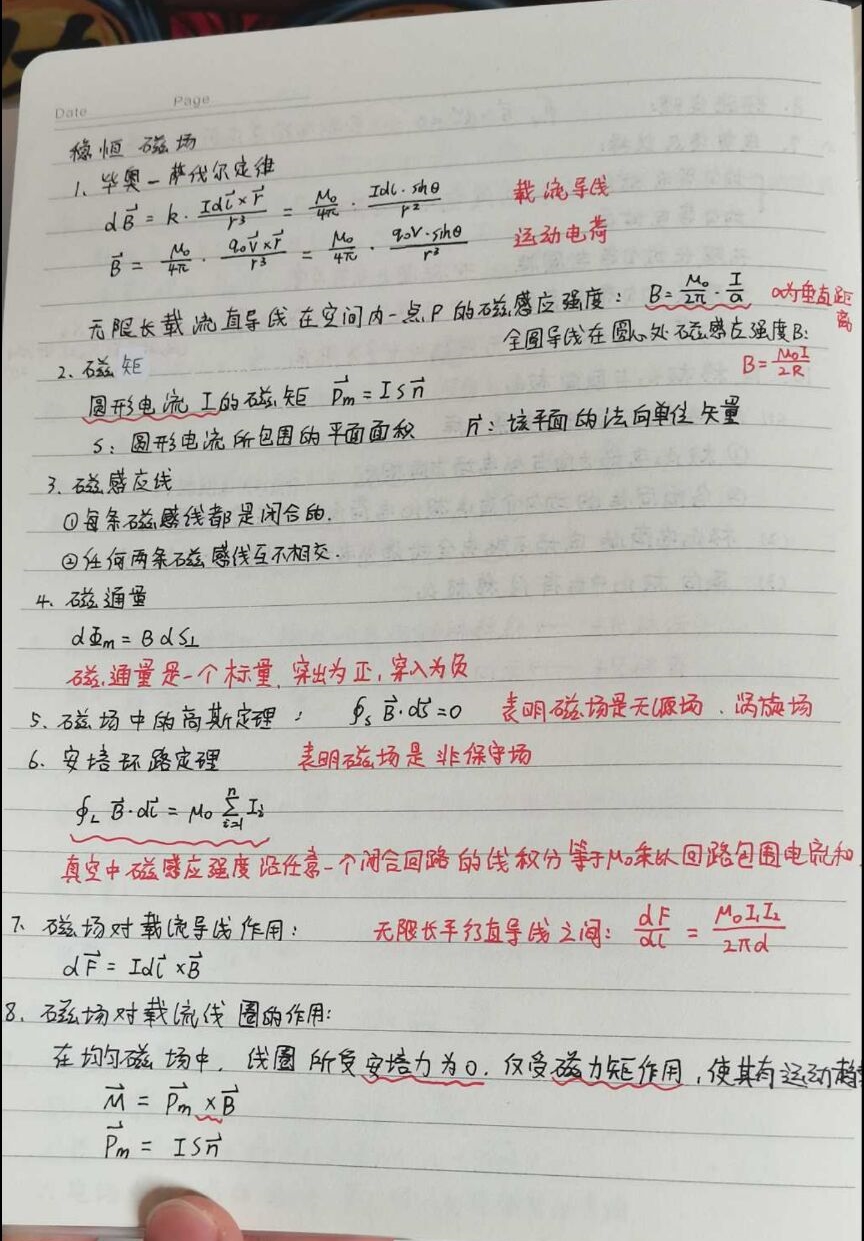 Date Page
稳恒磁场
1、毕奥-萨伐尔定律
dB⃗ = k · Idl⃗×r⃗/r³ = μ₀/4π · Idl·sinθ/r² 载流导线
B⃗ = μ₀/4π · q₀v⃗×r⃗/r³ = μ₀/4π · q₀v·sinθ/r² 运动电荷
无限长载流直导线在空间内一点P的磁感应强度: B=μ₀/2π · I/a a为垂直距离
全圆导线在圆心处磁感应强度B:
B=μ₀I/2R
2、磁矩
圆形电流I的磁矩 P⃗m = ISn⃗
S: 圆形电流所包围的平面面积 n⃗: 该平面的法向单位矢量
3、磁感应线
①每条磁感线都是闭合的.
②任何两条磁感线互不相交.
4、磁通量
dΦm = BdS⊥
磁通量是一个标量, 穿出为正, 穿入为负
5、磁场中的高斯定理: ∮s B⃗·dS⃗=0 表明磁场是无源场、涡旋场
6、安培环路定理 表明磁场是非保守场
∮L B⃗·dl⃗ = μ₀ ∑ⁿᵢ₌₁ Iᵢ
真空中磁感应强度沿任意一个闭合回路的线积分等于μ₀乘以回路包围电流和
7、磁场对载流导线作用: 无限长平行直导线之间: dF/dl = μ₀I₁I₂/2πd
dF⃗ = Idl⃗×B⃗
8、磁场对载流线圈的作用:
在均匀磁场中, 线圈所受安培力为0, 仅受磁力矩作用, 使其有运动趋
M⃗ = P⃗m×B⃗
P⃗m = ISn⃗